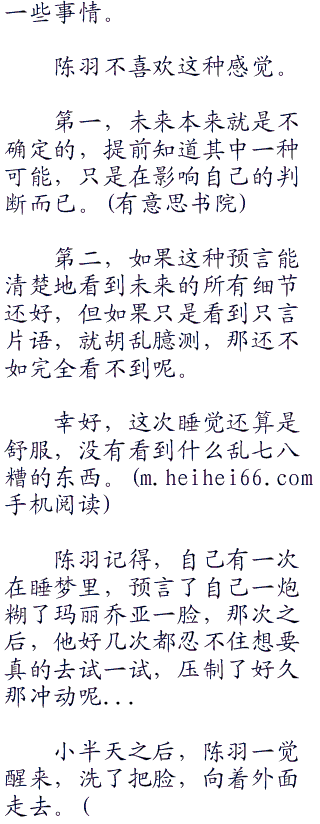 一些事情。
陈羽不喜欢这种感觉。
第一，未来本来就是不
确定的，提前知道其中一种
可能，只是在影响自己的判
断而已。(有意思书院)
第二，如果这种预言能
清楚地看到未来的所有细节
还好，但如果只是看到只言
片语，就胡乱臆测，那还不
如完全看不到呢。
幸好，这次睡觉还算是
舒服，没有看到什么乱七八
糟的东西。(m.heihei66.com
手机阅读)
陈羽记得，自己有一次
在睡梦里，预言了自己一炮
糊了玛丽乔亚一脸，那次之
后，他好几次都忍不住想要
真的去试一试，压制了好久
那冲动呢...
小半天之后，陈羽一觉
醒来，洗了把脸，向着外面
走去。(